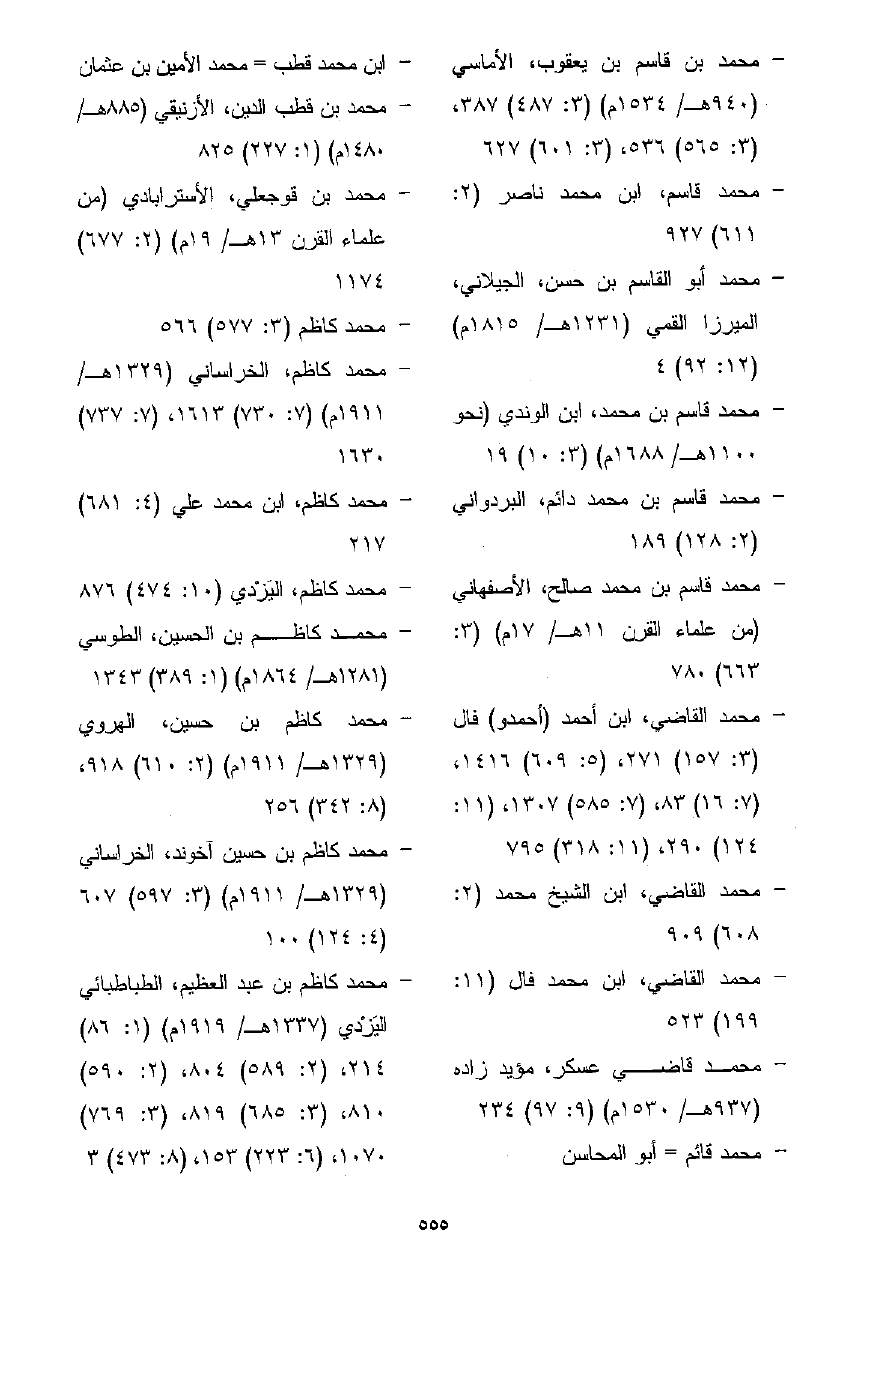 - محمد بن قاسم بن يعقوب، الأماسي
(٩٤٠هـ/ ١٥٣٤م) (٣: ٤٨٧) ٣٨٧،
(٣: ٥٦٥) ٥٣٦، (٣: ٦٠١) ٦٢٧
- محمد قاسم، ابن محمد ناصر (٢:
٦١١) ٩٢٧
- محمد أبو القاسم بن حسن، الجيلاني،
الميرزا القمي (١٢٣١هـ/ ١٨١٥م)
(١٢: ٩٢) ٤
- محمد قاسم بن محمد، ابن الوندي (نحو
١١٠٠هـ/ ١٦٨٨م) (٣: ١٠) ١٩
- محمد قاسم بن محمد دائم، البردواني
(٢: ١٢٨) ١٨٩
- محمد قاسم بن محمد صالح، الأصفهاني
(من علماء القرن ١١هـ/ ١٧م) (٣:
٦٦٣) ٧٨٠
- محمد القاضي، ابن أحمد (أحمدو) فال
(٣: ١٥٧) ٢٧١، (٥: ٦٠٩) ١٤١٦،
(٧: ١٦) ٨٣، (٧: ٥٨٥) ١٣٠٧، (١١:
١٢٤) ٢٩٠، (١١: ٣١٨) ٧٩٥
- محمد القاضي، ابن الشيخ محمد (٢:
٦٠٨) ٩٠٩
- محمد القاضي، ابن محمد فال (١١:
١٩٩) ٥٢٣
- محمد قاضي عسكر، مؤيد زاده
(٩٣٧هـ/ ١٥٣٠م) (٩: ٩٧) ٢٣٤
- محمد قائم = أبو المحاسن
- ابن محمد قطب = محمد الأمين بن عثمان
- محمد بن قطب الدين، الأزنيقي (٨٨٥هـ/
١٤٨٠م) (١: ٢٢٧) ٨٢٥
- محمد بن قوجعلي، الأسترابادي (من
علماء القرن ١٣هـ/ ١٩م) (٢: ٦٧٧)
١١٧٤
- محمد كاظم (٣: ٥٧٧) ٥٦٦
- محمد كاظم، الخراساني (١٣٢٩هـ/
١٩١١م) (٧: ٧٣٠) ١٦١٣، (٧: ٧٣٧)
١٦٣٠
- محمد كاظم، ابن محمد علي (٤: ٦٨١)
٢١٧
- محمد كاظم، اليَزْدي (١٠: ٤٧٤) ٨٧٦
- محمد كاظم بن الحسين، الطوسي
(١٢٨١هـ/ ١٨٦٤م) (١: ٣٨٩) ١٣٤٣
- محمد كاظم بن حسين، الهروي
(١٣٢٩هـ/ ١٩١١م) (٢: ٦١٠) ٩١٨،
(٨: ٣٤٢) ٢٥٦
- محمد كاظم بن حسين آخوند، الخراساني
(١٣٢٩هـ/ ١٩١١م) (٣: ٥٩٧) ٦٠٧
(٤: ١٢٤) ١٠٠
- محمد كاظم بن عبد العظيم، الطباطبائي
اليَزْدي (١٣٣٧هـ/ ١٩١٩م) (١: ٨٦)
٢١٤، (٢: ٥٨٩) ٨٠٤، (٢: ٥٩٠)
٨١٠، (٣: ٦٨٥) ٨١٩، (٣: ٧٦٩)
١٠٧٠، (٦: ٢٢٣) ١٥٣، (٨: ٤٧٣) ٣
٥٥٥